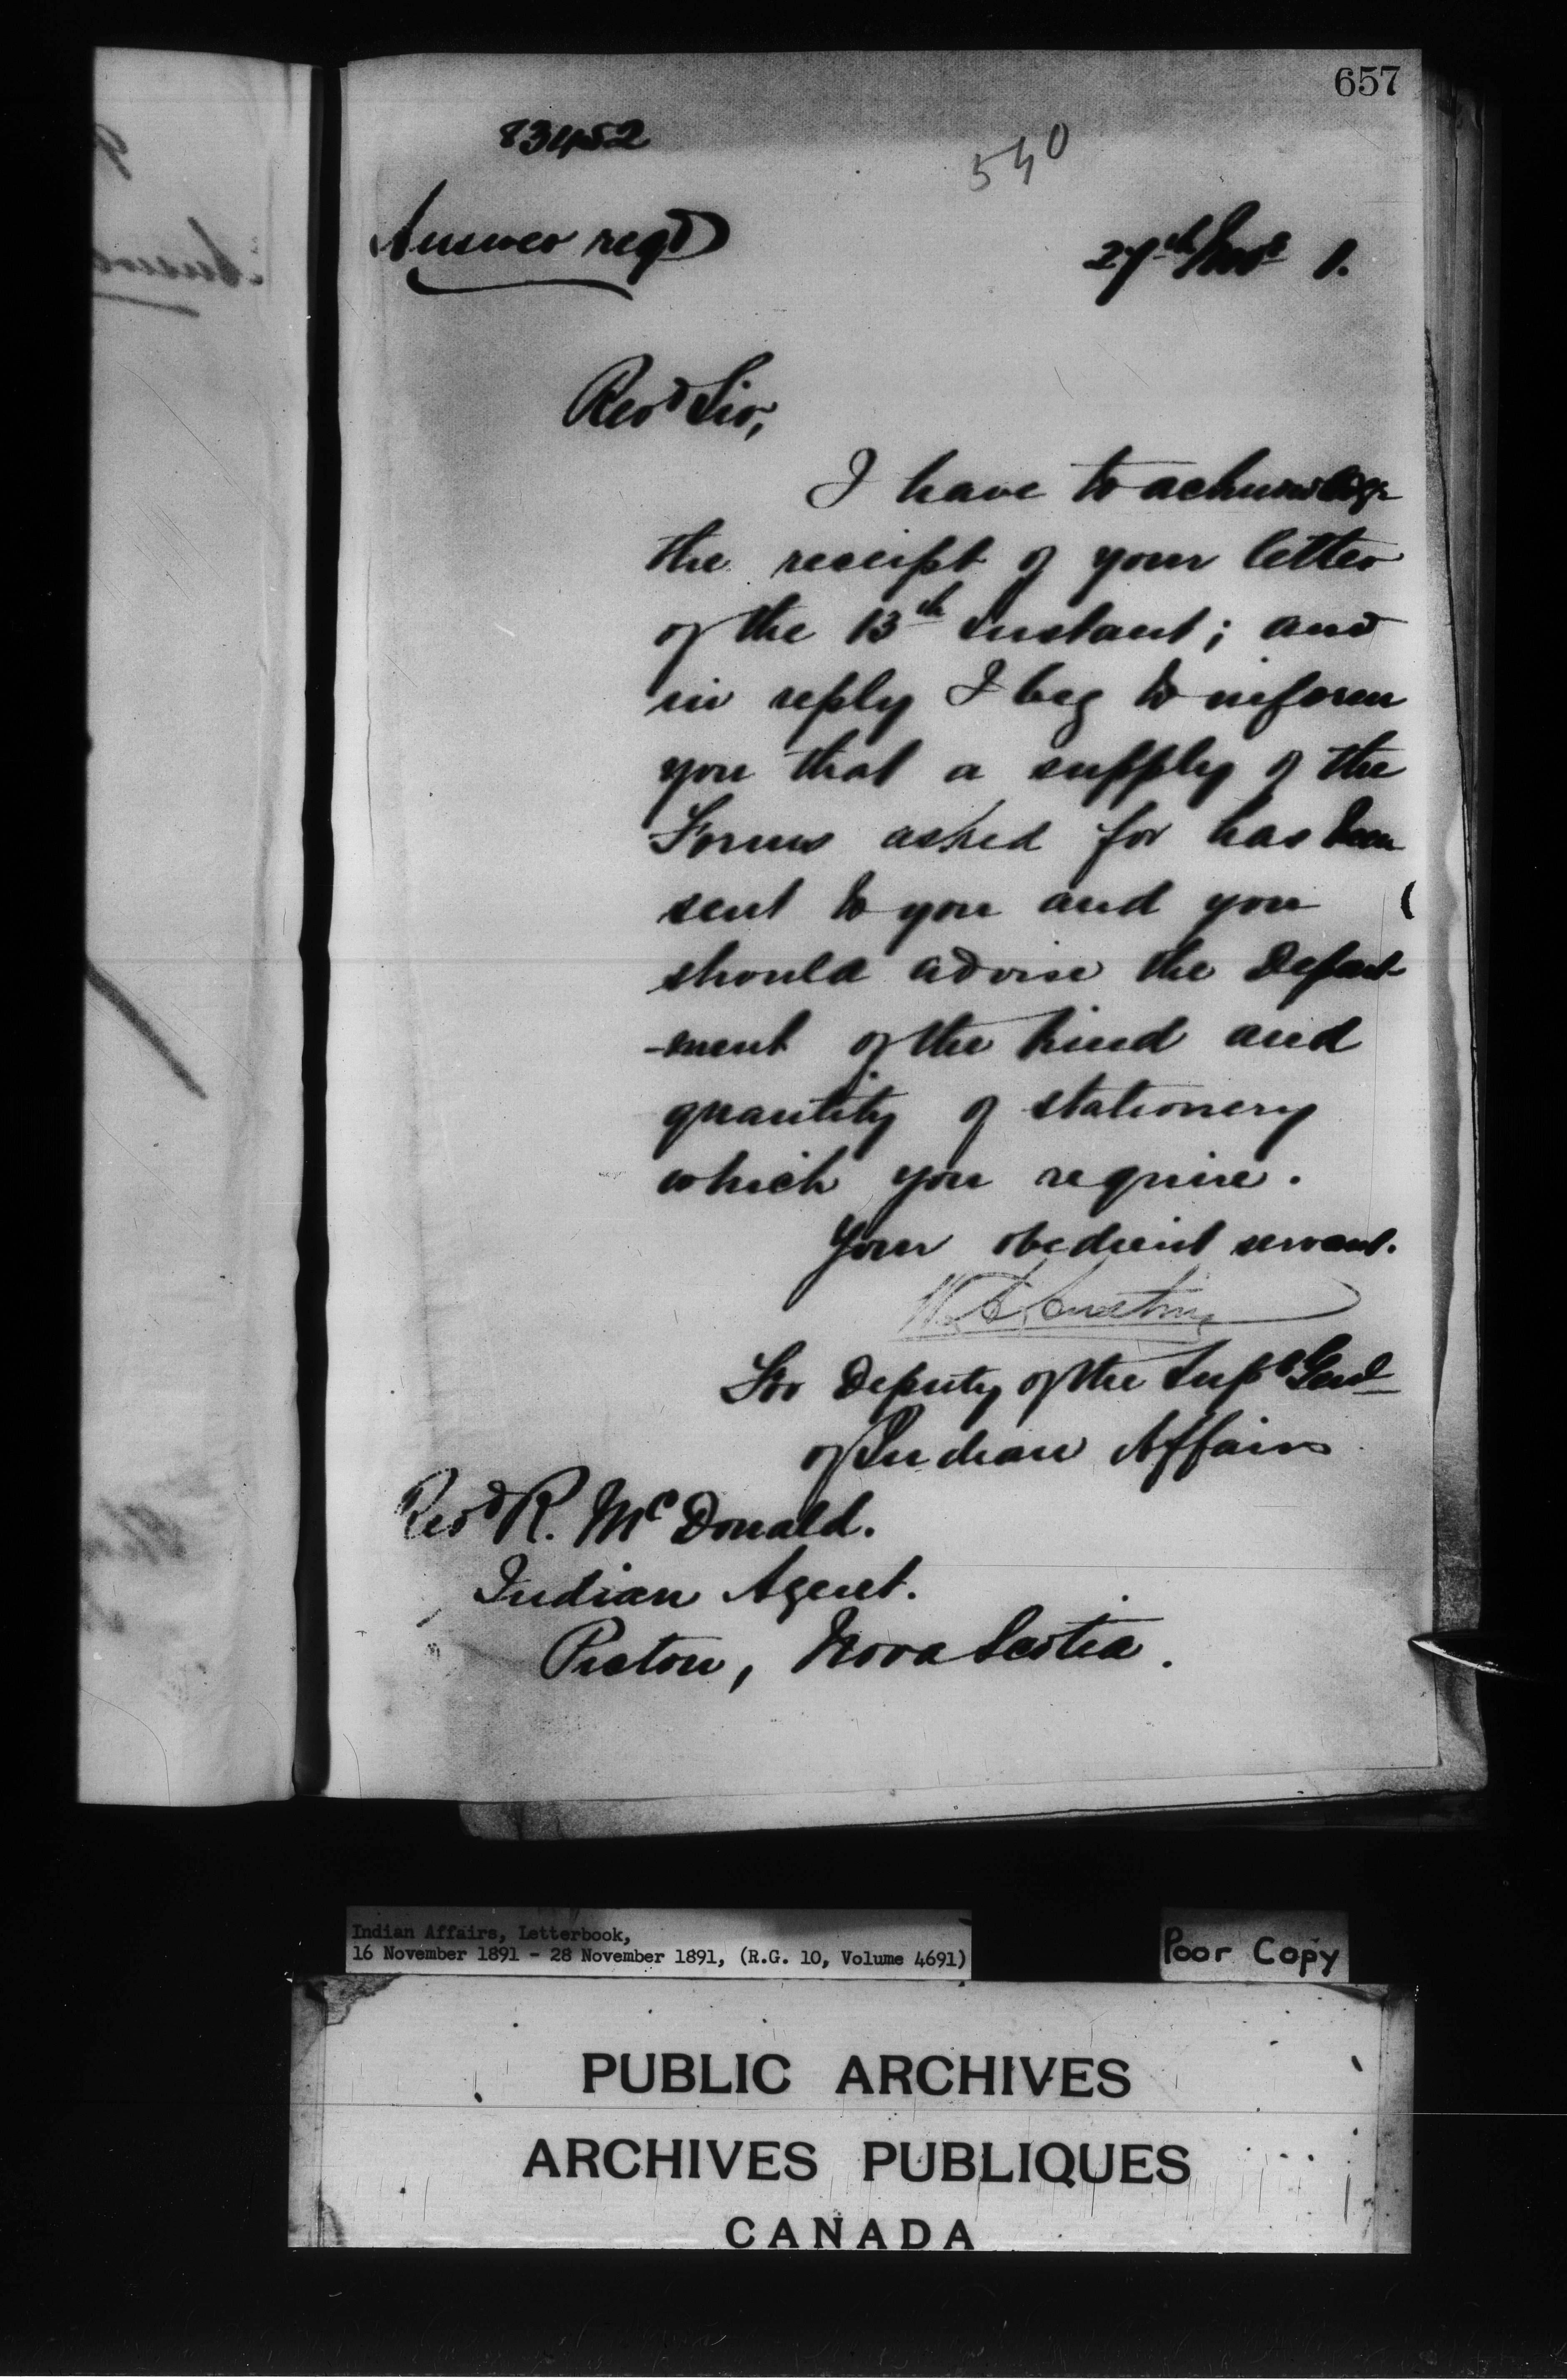 657
83452
540
Answer reqd
27th Novr 1.
Revd Sir,
I have to acknowledge
the receipt of your letter
of the 13th instant; and
in reply I beg to inform
you that a supply of the
Forms asked for has been
sent to you and you
should advise the Depart-
-ment of the kind and
quantity of stationery
which you require.
Your obedient servant.
For Deputy of the Supt Genl
of Indian Affairs
Revd R. McDonald.
Indian Agent.
Pictou, Nova Scotia.
Indian Affairs, Letterbook,
16 November 1891 - 28 November 1891, (R.G. 10, Volume 4691)
Poor Copy
PUBLIC ARCHIVES
ARCHIVES PUBLIQUES
CANADA